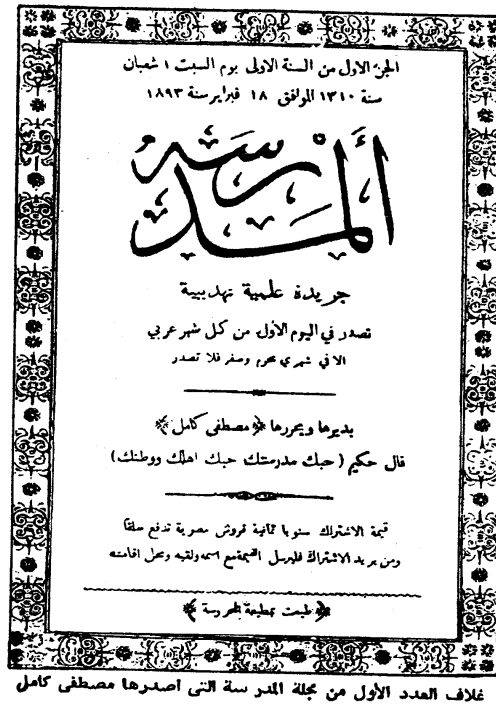 الجزء الاول من السنة الاولى يوم السبت ١ شعبان
سنة ١٣١٠ الموافق ١٨ فبراير سنة ١٨٩٣
المدرسه
جريدة علمية تهذيبية
تصدر في اليوم الأول من كل شهر عربي
الا في شهري محرم وصفر فلا تصدر
يديرها ويحررها ﴿مصطفى كامل﴾
قال حكيم (حبك مدرستك حبك اهلك ووطنك)
قيمة الاشتراك سنويا ثمانية قروش مصرية تدفع سلفا
ومن يريد الاشتراك فليرسل القيمة مع اسمه ولقبه ومحل اقامته
﴿طبعت بمطبعة المحروسة﴾
غلاف العدد الأول من مجلة المدرسة التى أصدرها مصطفى كامل